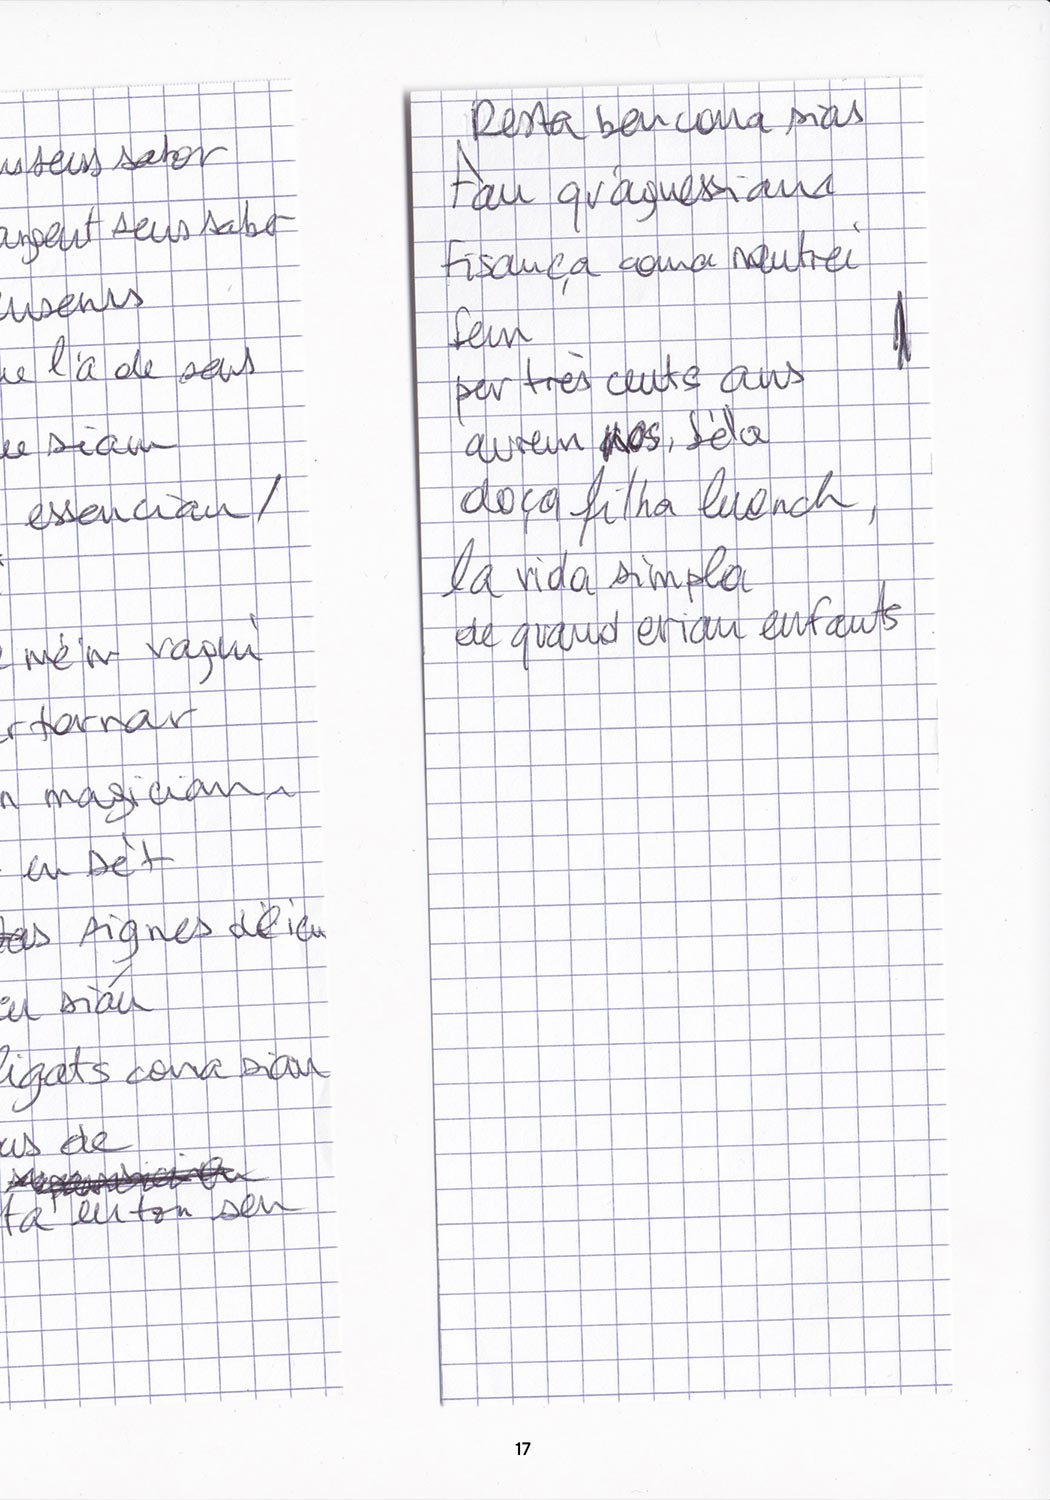 sens sabor
argent sens sabe
l'a de sens
siam
essencian/
mé'n vagui
tornar
magician
en sèt
signes dèieu
siáu
ligats coma siam
de
ta en ton sen
Resta ben coma sias
Fau qu'aguessiam
fisança coma nautrei
fem
per très cents ans
aurem nos, sèla
doça filha luench,
la vida simpla
de quand eriam enfants
17